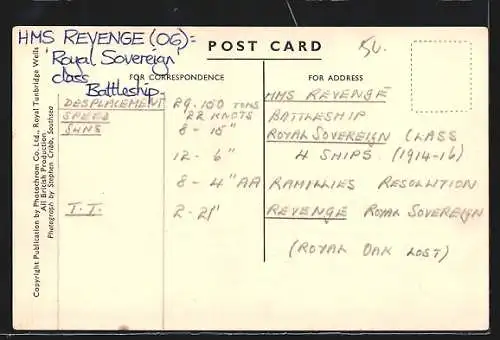 HMS REVENGE (06):
'Royal Sovereign'
class
Battleship.
POST CARD
FOR CORRESPONDENCE
FOR ADDRESS
Copyright Publication by Photochrom Co. Ltd., Royal Tunbridge Wells
All British Production
Photograph by Stephen Cribb, Southsea
DESPLACEMENT 29.150 TONS
SPEED 22 KNOTS
GUNS 8 - 15"
12 - 6"
8 - 4" AA
T.T. 2 - 21"
HMS REVENGE
BATTLESHIP
ROYAL SOVEREIGN CLASS
4 SHIPS (1914-16)
RAMILLIES RESOLUTION
REVENGE ROYAL SOVEREIGN
(ROYAL OAK LOST)